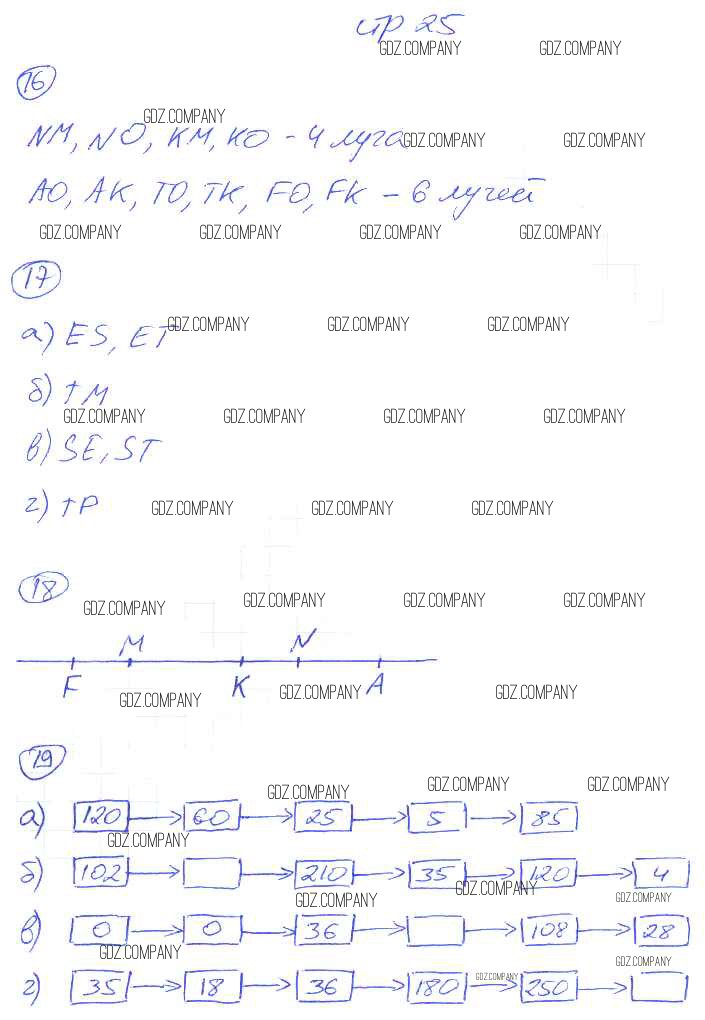 стр 25
GDZ.COMPANY GDZ.COMPANY
16
GDZ.COMPANY
NM, NO, KM, KO - 4 луча
GDZ.COMPANY GDZ.COMPANY
AO, AK, TO, TK, FO, FK - 6 лучей
GDZ.COMPANY GDZ.COMPANY GDZ.COMPANY GDZ.COMPANY
17
GDZ.COMPANY GDZ.COMPANY GDZ.COMPANY
а) ES, ET
б) TM
GDZ.COMPANY GDZ.COMPANY GDZ.COMPANY GDZ.COMPANY
в) SE, ST
г) TP
GDZ.COMPANY GDZ.COMPANY GDZ.COMPANY
18
GDZ.COMPANY GDZ.COMPANY GDZ.COMPANY GDZ.COMPANY
M N
F K A
GDZ.COMPANY GDZ.COMPANY GDZ.COMPANY
19
GDZ.COMPANY GDZ.COMPANY GDZ.COMPANY
а) 120 60 25 5 85
GDZ.COMPANY
б) 102 210 35 120 4
GDZ.COMPANY GDZ.COMPANY GDZ.COMPANY
в) 0 0 36 108 28
GDZ.COMPANY GDZ.COMPANY
г) 35 18 36 180 250
GDZ.COMPANY